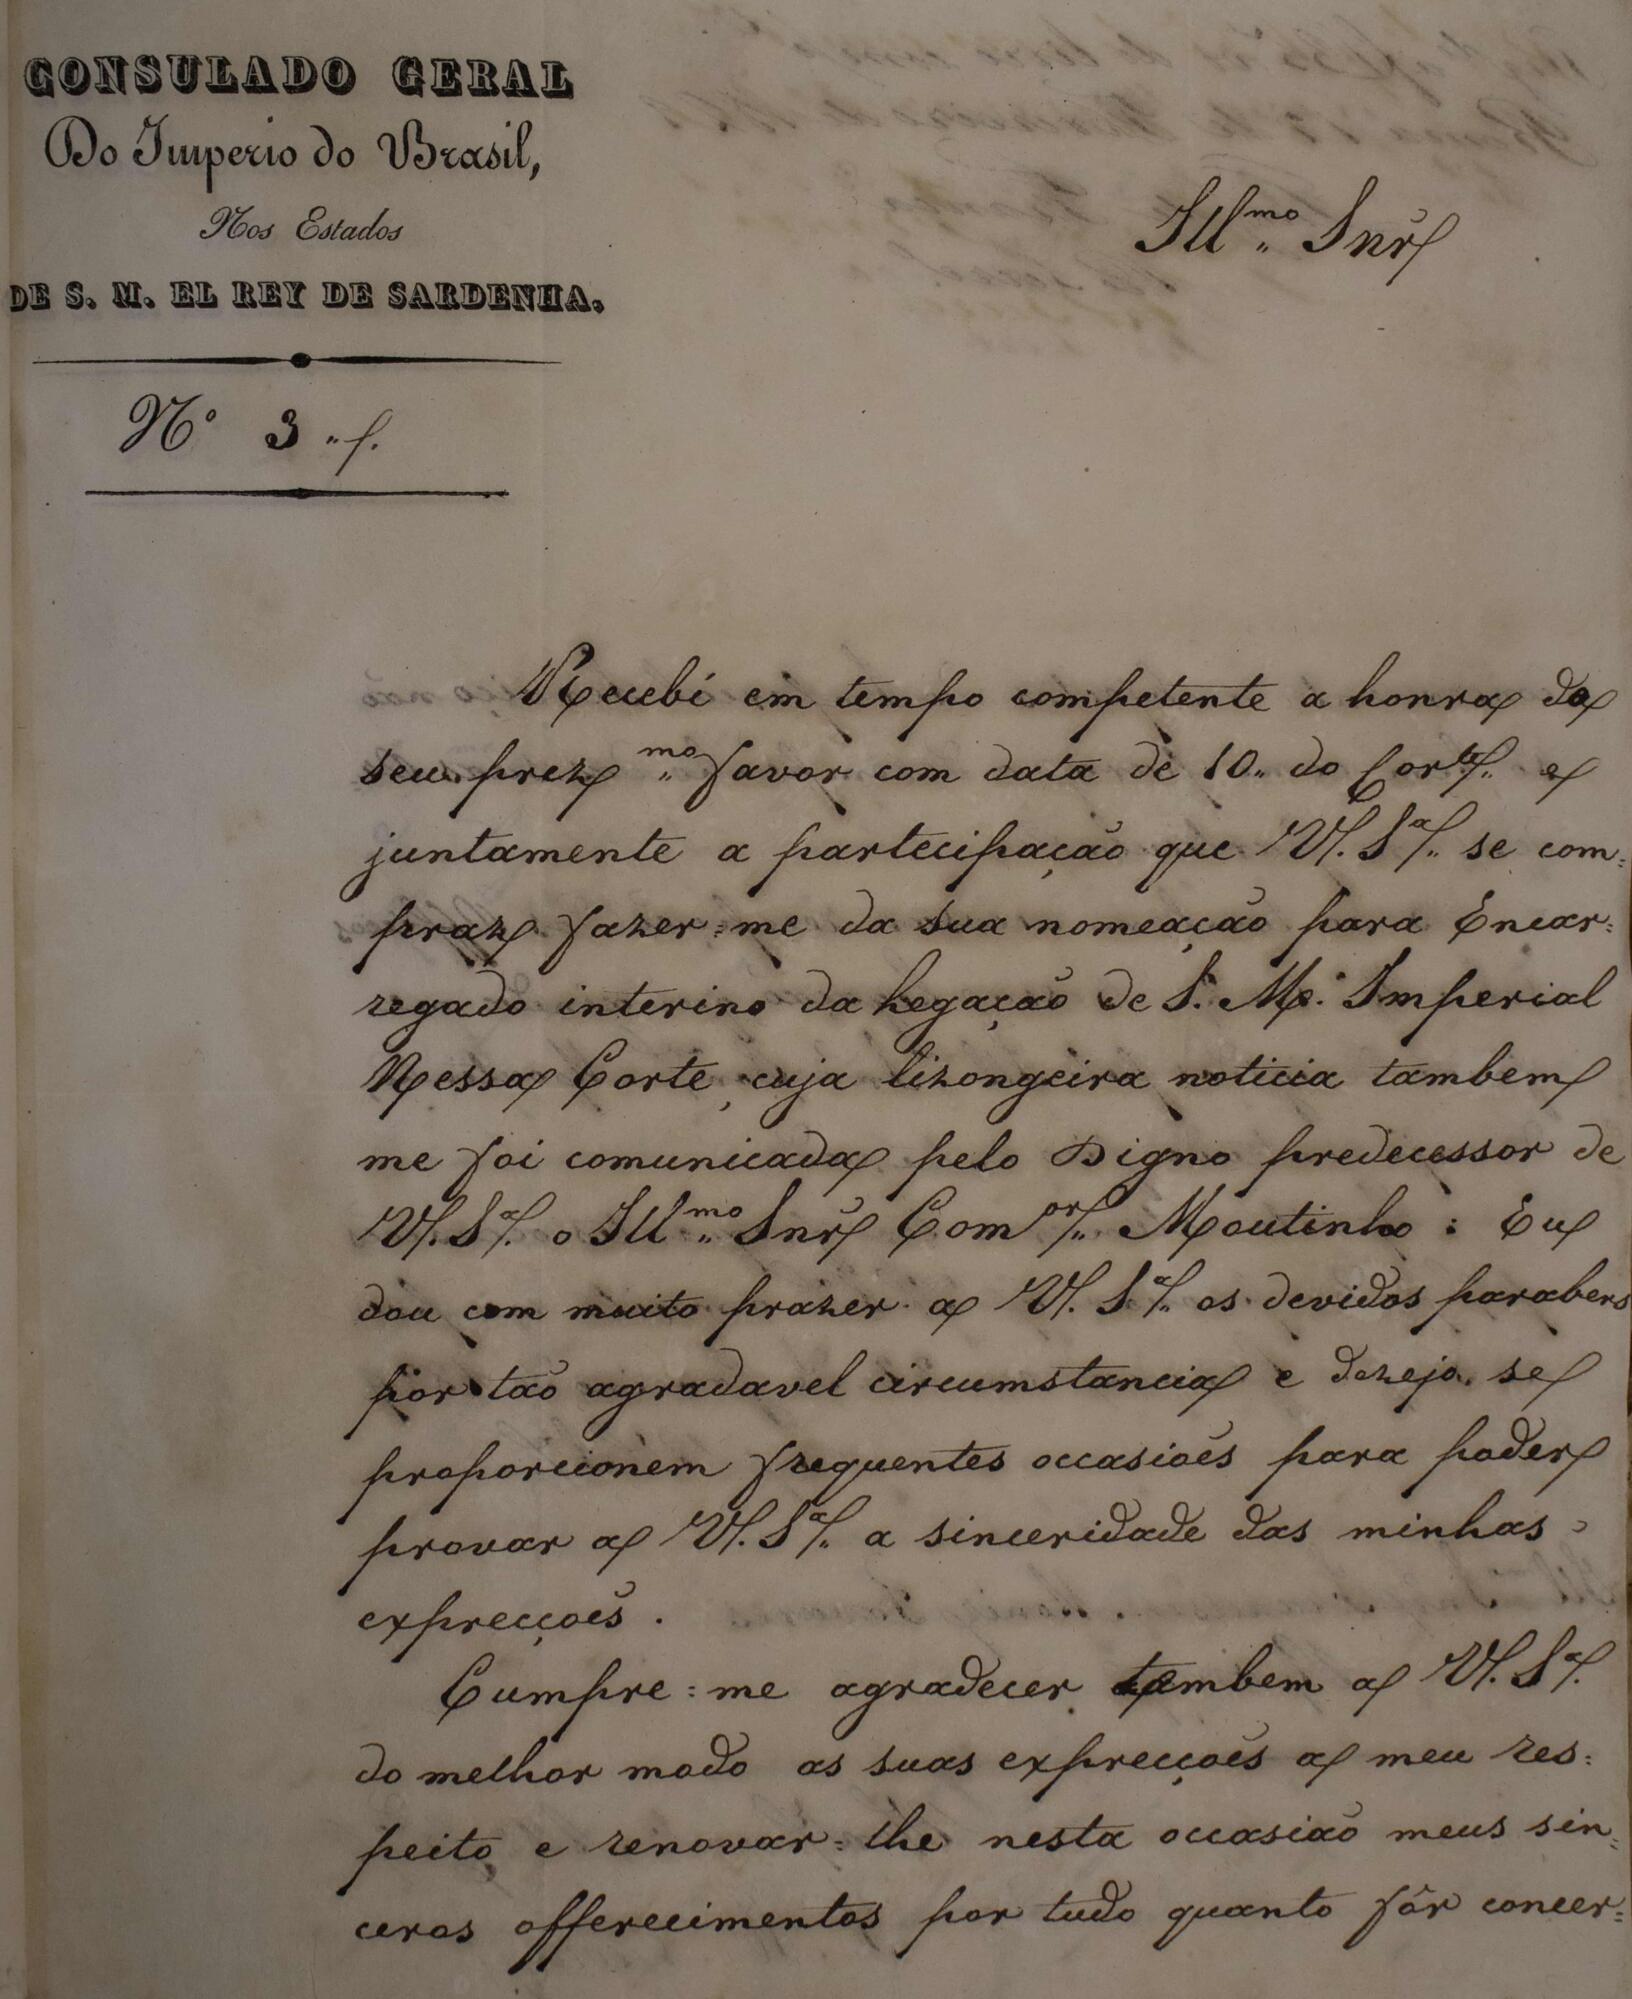 CONSULADO GERAL
Do Imperio do Brasil,
Nos Estados
DE S. M. EL REY DE SARDENHA.
Nº 3
Illmo Snr
Recebi em tempo competente a honra da
seu prezmo favor com data de 10 do Corte e
juntamente a partecipação que V. Sa se com=
praz fazer=me da sua nomeação para Encar=
regado interino da Legação de S. M. Imperial
Nessa Corte, cuja lizongeira noticia tambem
me foi comunicada pelo Digno predecessor de
V. Sa o Illmo Snr Comor Moutinho : Eu
dou com muito prazer a V. Sa os devidos parabens
por tão agradavel circumstancia e dezejo se
proporcionem frequentes occasioẽs para poder
provar a V. Sa a sinceridade das minhas
expreçoẽs.
Cumpre=me agradecer tambem a V. Sa
do melhor modo as suas expreçoẽs a meu res=
peito e renovar=lhe nesta occasião meus sin=
ceros offerecimentos por tudo quanto fôr concer=